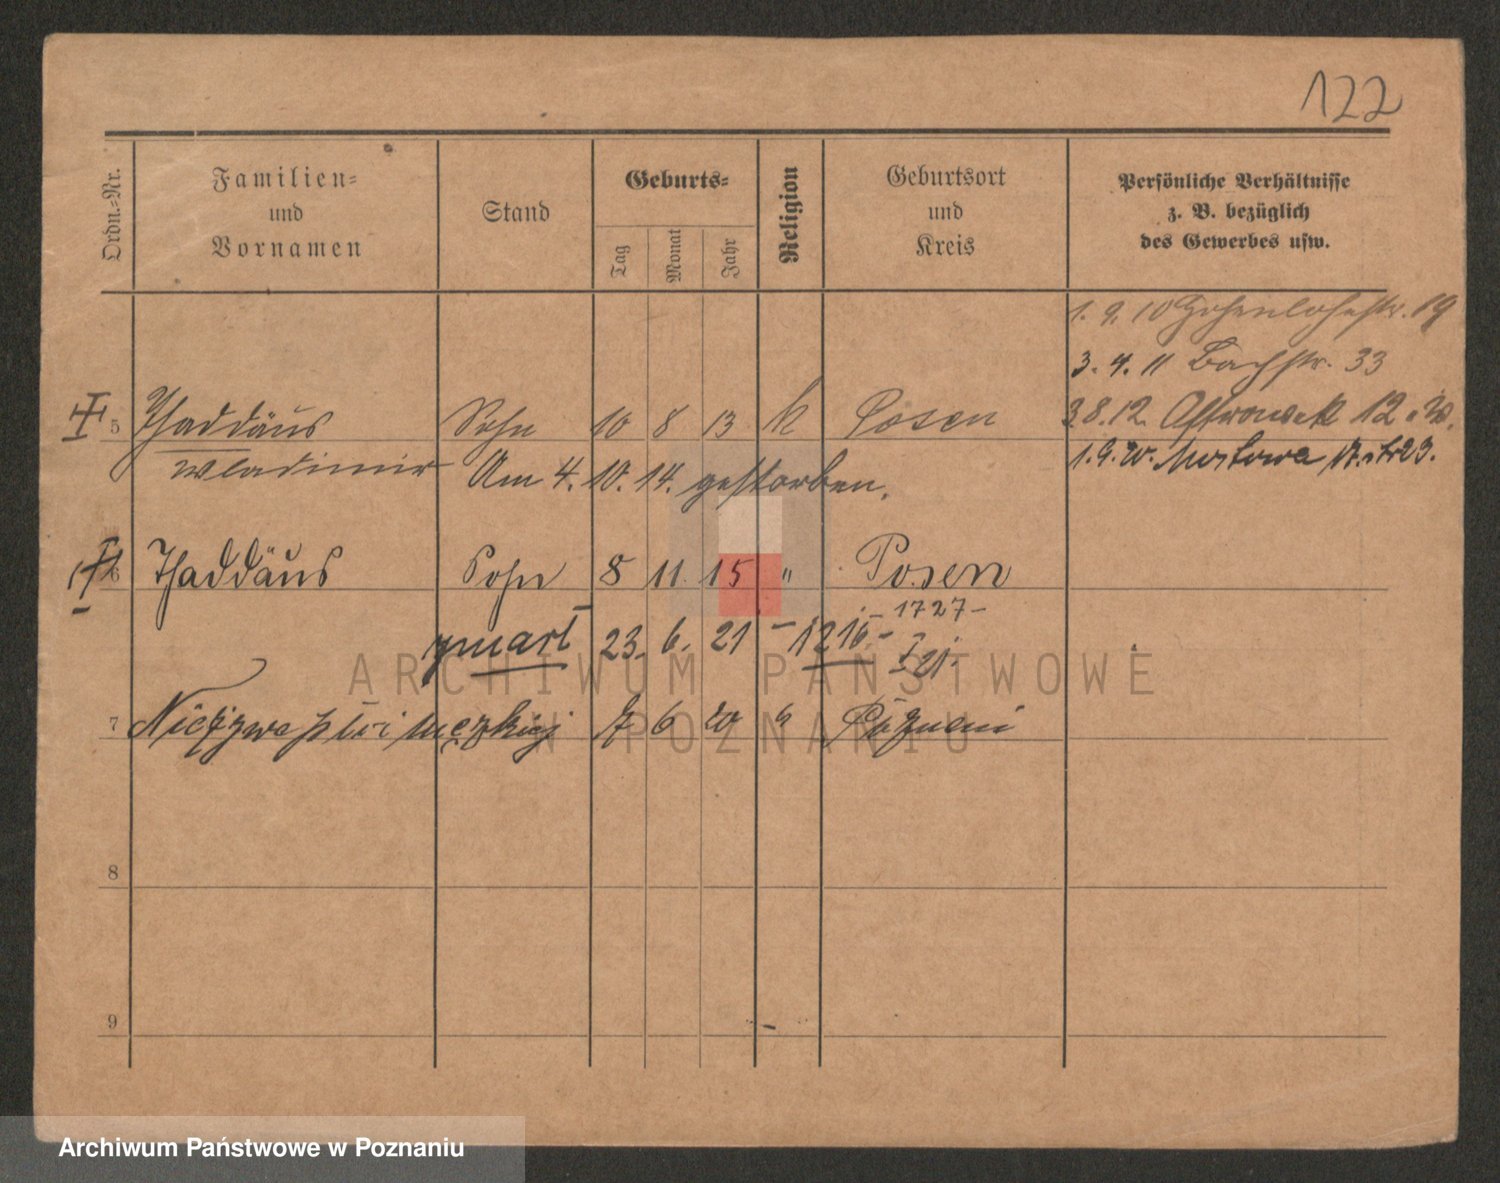 122
Ordn.-Nr.
Familien-
und
Vornamen
Stand
Geburts-
Tag
Monat
Jahr
Religion
Geburtsort
und
Kreis
Persönliche Verhältnisse
z. B. bezüglich
des Gewerbes usw.
1. 9. 10 Hohenlohestr. 19
3. 4. 11 Bachstr. 33
3.8.12. Ostrowek 12
1.9.20. Mostowa 23.
5 Thaddäus Sohn 10 8 13 k Posen
Wladimir Am 4. 10. 14. gestorben.
6 Thaddäus Sohn 8 11. 15 " Posen
zmarł 23. 6. 21 - 1216. - 1727 -
I 21.
7 Nieżywa płci męzkiej 7 6 20 k Poznań
8
9
ARCHIWUM PAŃSTWOWE
W POZNANIU
Archiwum Państwowe w Poznaniu